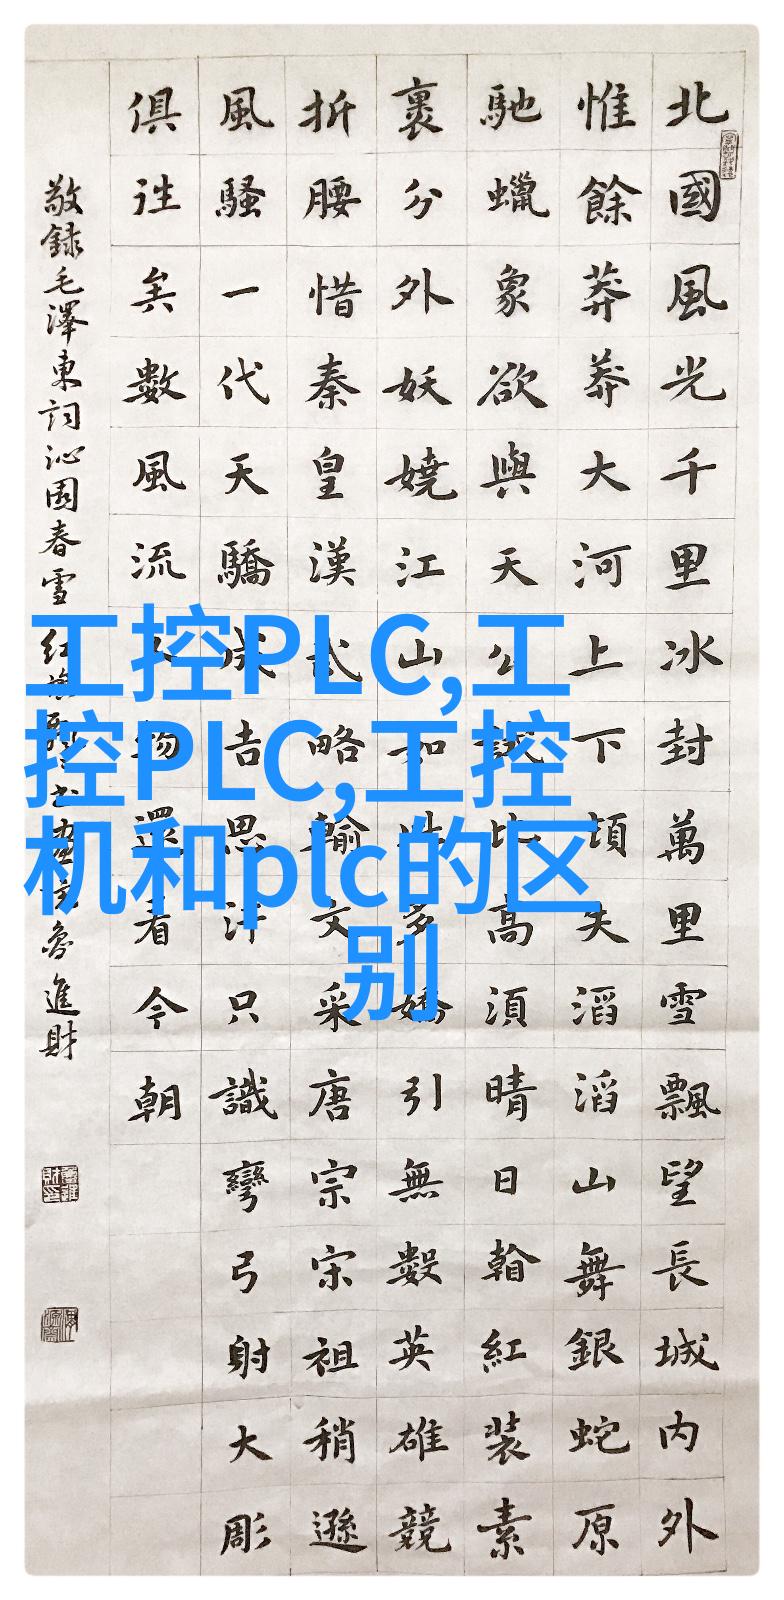 北國風光千里冰封萬里雪飄望長城内外
惟餘莽莽大河上下頃失滔滔山舞銀蛇原
馳蠟象欲與天公試比高須晴日翰紅裝素
裹分外妖嬈江山如此多嬌引無數英雄競
折腰惜秦皇漢武略輸文采唐宗宋祖稍遜
風騷一代天驕成吉思汗只識彎弓射大彫
俱往矣數風流人物還看今朝
敬録毛澤東詞沁園春雪 魯進財
工控PLC,工
控PLC,工控
机和plc的区
别